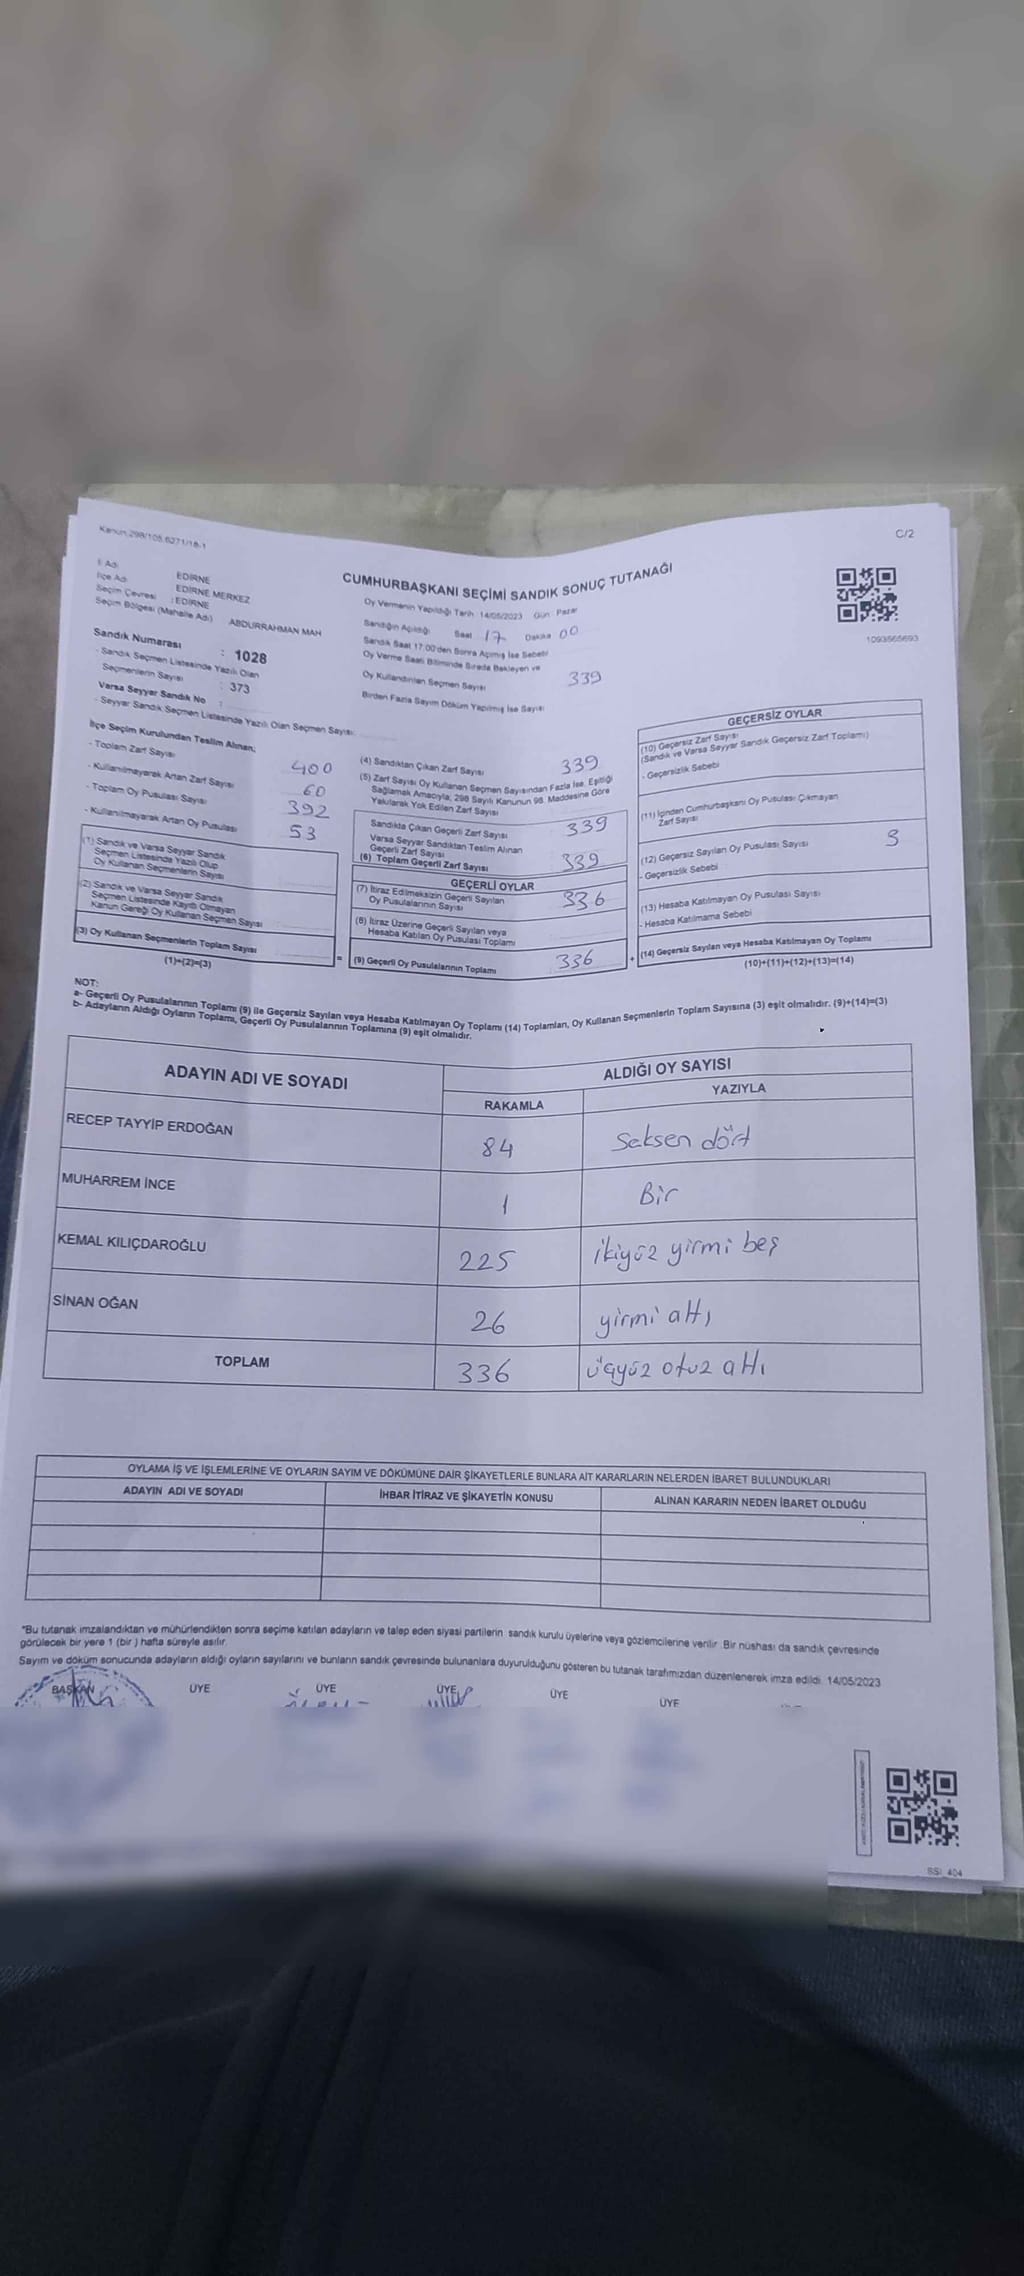 Kanun:298/105.6271/18-1
C/2
İl Adı EDİRNE
İlçe Adı EDİRNE MERKEZ
Seçim Çevresi : EDİRNE
Seçim Bölgesi (Mahalle Adı) ABDURRAHMAN MAH
CUMHURBAŞKANI SEÇİMİ SANDIK SONUÇ TUTANAĞI
Oy Vermenin Yapıldığı Tarih : 14/05/2023 Gün : Pazar
Sandığın Açıldığı Saat 17 Dakika 00
Sandık Saat 17:00'den Sonra Açılmış İse Sebebi
Oy Verme Saati Bitiminde Sırada Bekleyen ve
Oy Kullandırılan Seçmen Sayısı 339
Birden Fazla Sayım Döküm Yapılmış İse Sayısı
1093565693
Sandık Numarası : 1028
- Sandık Seçmen Listesinde Yazılı Olan
Seçmenlerin Sayısı : 373
Varsa Seyyar Sandık No :
- Seyyar Sandık Seçmen Listesinde Yazılı Olan Seçmen Sayısı:
İlçe Seçim Kurulundan Teslim Alınan;
- Toplam Zarf Sayısı 400
- Kullanılmayarak Artan Zarf Sayısı 60
- Toplam Oy Pusulası Sayısı 392
- Kullanılmayarak Artan Oy Pusulası 53
(1) Sandık ve Varsa Seyyar Sandık
Seçmen Listesinde Yazılı Olup
Oy Kullanan Seçmenlerin Sayısı
(2) Sandık ve Varsa Seyyar Sandık
Seçmen Listesinde Kayıtlı Olmayan
Kanun Gereği Oy Kullanan Seçmen Sayısı
(3) Oy Kullanan Seçmenlerin Toplam Sayısı
(1)+(2)=(3)
=
(4) Sandıktan Çıkan Zarf Sayısı 339
(5) Zarf Sayısı Oy Kullanan Seçmen Sayısından Fazla İse, Eşitliği
Sağlamak Amacıyla, 298 Sayılı Kanunun 98. Maddesine Göre
Yakılarak Yok Edilen Zarf Sayısı
Sandıkta Çıkan Geçerli Zarf Sayısı 339
Varsa Seyyar Sandıktan Teslim Alınan
Geçerli Zarf Sayısı
(6) Toplam Geçerli Zarf Sayısı 339
GEÇERLİ OYLAR
(7) İtiraz Edilmeksizin Geçerli Sayılan
Oy Pusulalarının Sayısı 336
(8) İtiraz Üzerine Geçerli Sayılan veya
Hesaba Katılan Oy Pusulası Toplamı
(9) Geçerli Oy Pusulalarının Toplamı 336
+
GEÇERSİZ OYLAR
(10) Geçersiz Zarf Sayısı
(Sandık ve Varsa Seyyar Sandık Geçersiz Zarf Toplamı)
- Geçersizlik Sebebi
(11) İçinden Cumhurbaşkanı Oy Pusulası Çıkmayan
Zarf Sayısı
(12) Geçersiz Sayılan Oy Pusulası Sayısı
- Geçersizlik Sebebi
(13) Hesaba Katılmayan Oy Pusulası Sayısı
- Hesaba Katılmama Sebebi
(14) Geçersiz Sayılan veya Hesaba Katılmayan Oy Toplamı
(10)+(11)+(12)+(13)=(14)
NOT:
a- Geçerli Oy Pusulalarının Toplamı (9) ile Geçersiz Sayılan veya Hesaba Katılmayan Oy Toplamı (14) Toplamları, Oy Kullanan Seçmenlerin Toplam Sayısına (3) eşit olmalıdır. (9)+(14)=(3)
b- Adayların Aldığı Oyların Toplamı, Geçerli Oy Pusulalarının Toplamına (9) eşit olmalıdır.
ADAYIN ADI VE SOYADI ALDIĞI OY SAYISI
RAKAMLA YAZIYLA
RECEP TAYYİP ERDOĞAN 84 Seksen dört
MUHARREM İNCE 1 Bir
KEMAL KILIÇDAROĞLU 225 ikiyüz yirmi beş
SİNAN OĞAN 26 yirmi altı
TOPLAM 336 üçyüz otuz altı
OYLAMA İŞ VE İŞLEMLERİNE VE OYLARIN SAYIM VE DÖKÜMÜNE DAİR ŞİKAYETLERLE BUNLARA AİT KARARLARIN NELERDEN İBARET BULUNDUKLARI
ADAYIN ADI VE SOYADI İHBAR İTİRAZ VE ŞİKAYETİN KONUSU ALINAN KARARIN NEDEN İBARET OLDUĞU
*Bu tutanak imzalandıktan ve mühürlendikten sonra seçime katılan adayların ve talep eden siyasi partilerin sandık kurulu üyelerine veya gözlemcilerine verilir. Bir nüshası da sandık çevresinde
görülecek bir yere 1 (bir ) hafta süreyle asılır.
Sayım ve döküm sonucunda adayların aldığı oyların sayılarını ve bunların sandık çevresinde bulunanlara duyurulduğunu gösteren bu tutanak tarafımızdan düzenlenerek imza edildi. 14/05/2023
BAŞKAN ÜYE ÜYE ÜYE ÜYE ÜYE
SSI_404